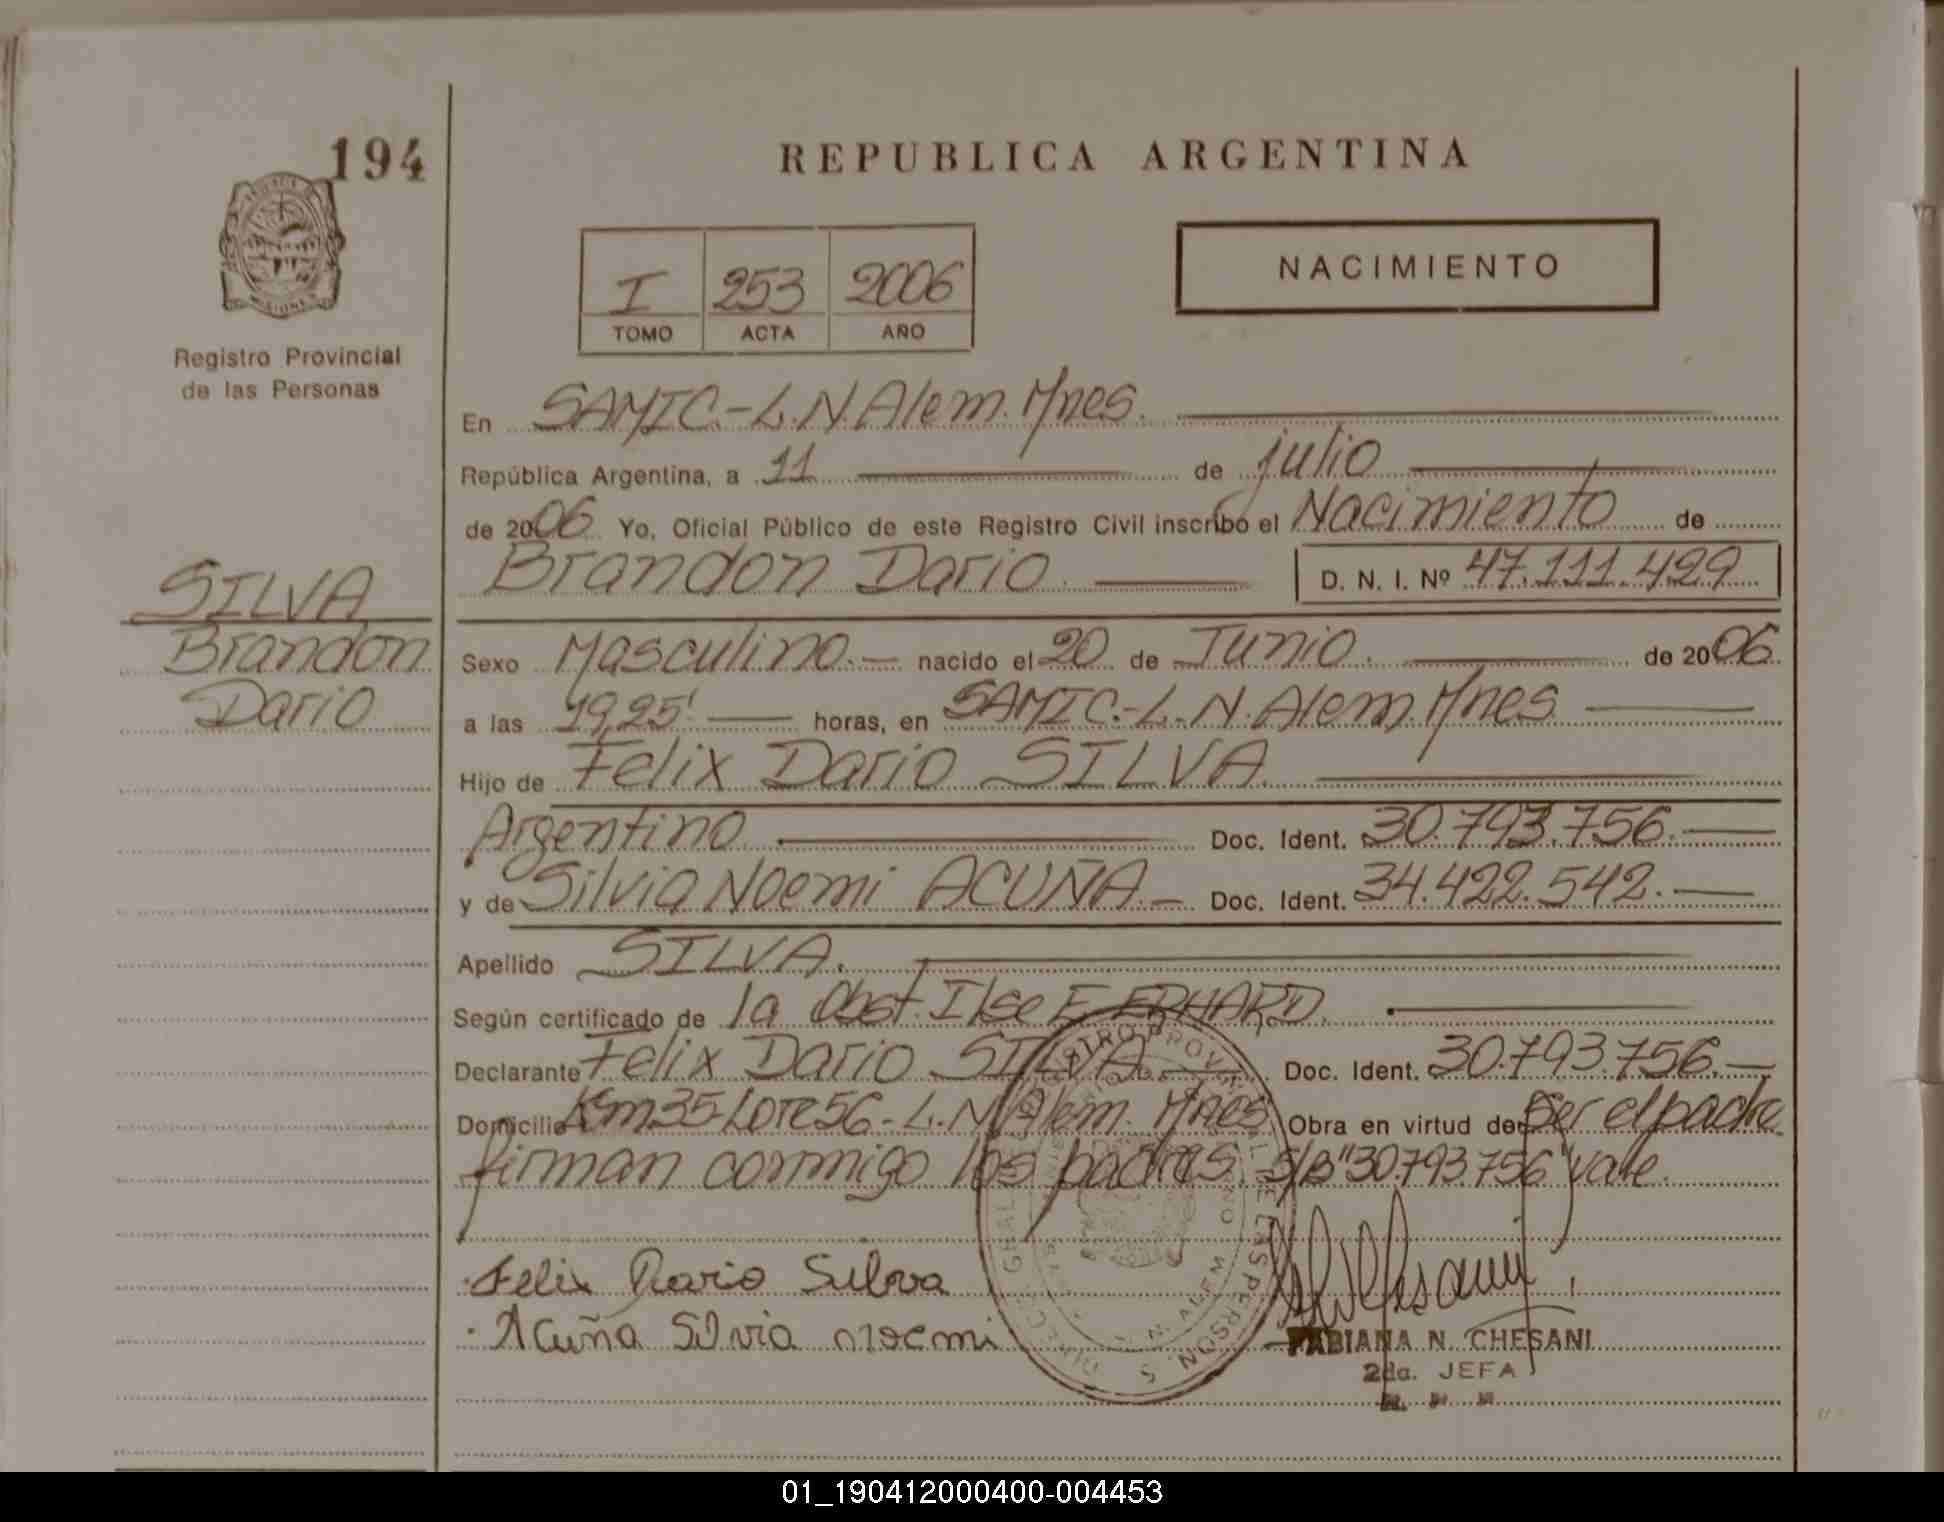 194
REPUBLICA ARGENTINA
I 253 2006
TOMO ACTA AÑO
NACIMIENTO
Registro Provincial
de las Personas
SILVA
Brandon
Dario
En SAMIC.-L.N.Alem.Mnes.
República Argentina, a 11 de julio
de 2006 Yo, Oficial Público de este Registro Civil inscribo el Nacimiento de
Brandon Dario. D. N. I. Nº 47.111.499
Sexo Masculino.- nacido el 20 de Junio. de 2006.
a las 19,25' horas, en SAMIC.-L.N.Alem.Mnes
Hijo de Felix Dario SILVA.
Argentino. Doc. Ident. 30.793.756.
y de Silvia Noemi ACUÑA.- Doc. Ident. 34.422.542.
Apellido SILVA.
Según certificado de la Obst. Ilse E. ERHARD.
Declarante Felix Dario SILVA. Doc. Ident. 30.793.756.-
Domicilio Km35-Lote56-L.N.Alem. Mnes Obra en virtud de Ser el padre
firman conmigo los padres. S/B"30.793.756"vale.
Felix Dario Silva
Acuña Silvia noemi
FABIANA N. CHESANI
2da. JEFA
01_190412000400-004453